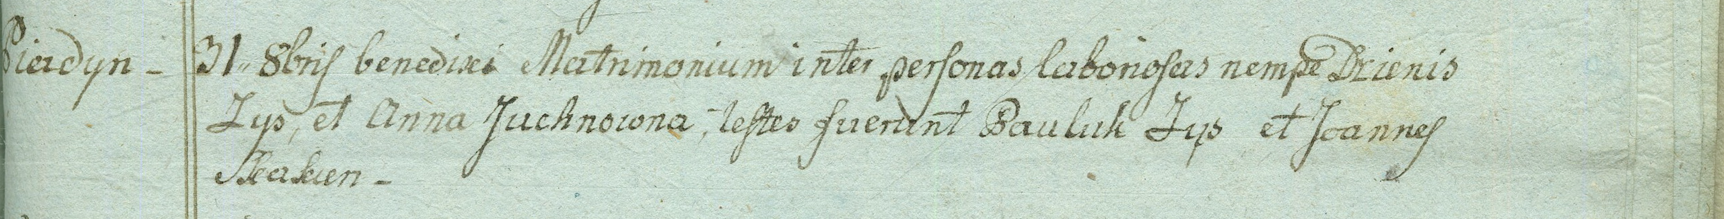 Pieradyn – 31 8bris benedixi Matrimonium inter personas laboriosas nempe Dzienis
Zys, et Anna Juchnowna, testes fuerunt Pauluk Zys et Joannes